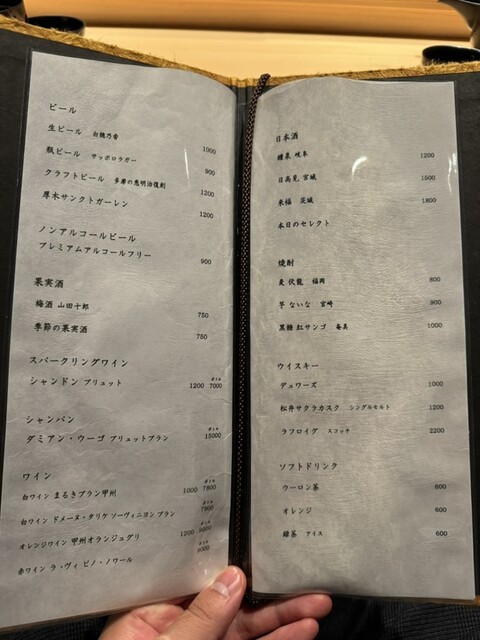 ビール
生ビール 白穂乃香 1000
瓶ビール サッポロラガー 900
クラフトビール 多摩の恵明治復刻 1200
厚木サンクトガーレン 1200
ノンアルコールビール
プレミアムアルコールフリー 900
果実酒
梅酒 山田十郎 750
季節の果実酒 750
スパークリングワイン
シャンドン ブリュット 1200 ボトル 7000
シャンパン
ダミアン・ウーゴ ブリュットブラン ボトル 15000
ワイン
白ワイン まるきブラン甲州 1000 ボトル 7800
白ワイン ドメーヌ・タリケ ソーヴィニヨン ブラン ボトル 7900
オレンジワイン 甲州オランジュグリ 1200 ボトル 9000
赤ワイン ラ・ヴィ ピノ・ノワール ボトル 9000
日本酒
醴泉 岐阜 1200
日高見 宮城 1500
来福 茨城 1800
本日のセレクト
焼酎
麦 伏龍 福岡 800
芋 ないな 宮崎 900
黒糖 紅サンゴ 奄美 1000
ウイスキー
デュワーズ 1000
松井サクラカスク シングルモルト 1200
ラフロイグ スコッチ 2200
ソフトドリンク
ウーロン茶 600
オレンジ 600
緑茶 アイス 600